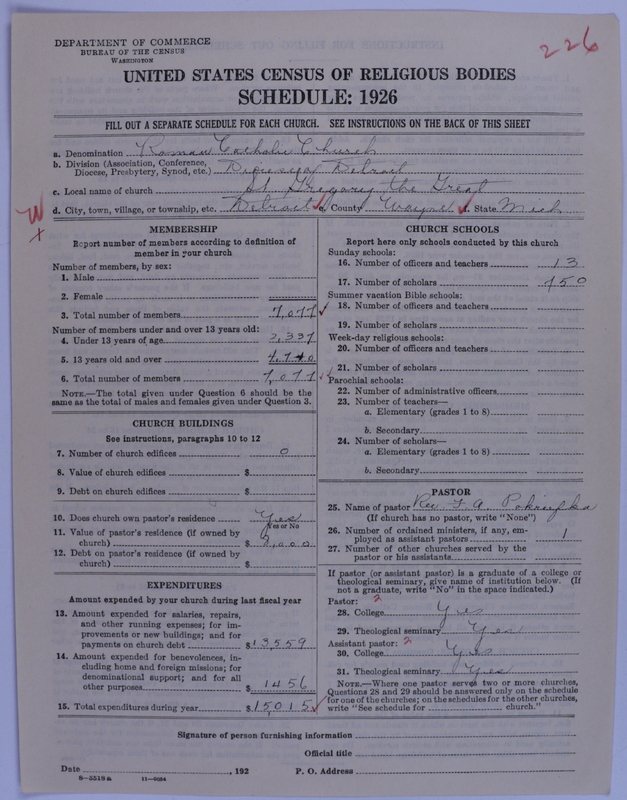 DEPARTMENT OF COMMERCE
BUREAU OF THE CENSUS
WASHINGTON
226
UNITED STATES CENSUS OF RELIGIOUS BODIES
SCHEDULE: 1926
FILL OUT A SEPARATE SCHEDULE FOR EACH CHURCH. SEE INSTRUCTIONS ON THE BACK OF THIS SHEET
a. Denomination Roman Catholic Church
b. Division (Association, Conference, Diocese, Presbytery, Synod, etc.) Detroit
c. Local name of church St. Gregory the Great
d. City, town, village, or township, etc. Detroit e. County Wayne f. State Mich
MEMBERSHIP
Report number of members according to definition of
member in your church
Number of members, by sex:
1. Male
2. Female
3. Total number of members
Number of members under and over 13 years old:
4. Under 13 years of age 2,337
5. 13 years old and over
6. Total number of members
NOTE.—The total given under Question 6 should be the
same as the total of males and females given under Question 3.
CHURCH BUILDINGS
See instructions, paragraphs 10 to 12
7. Number of church edifices 0
8. Value of church edifices $
9. Debt on church edifices $
10. Does church own pastor's residence Yes
Yes or No
11. Value of pastor's residence (if owned by
church) $
12. Debt on pastor's residence (if owned by
church) $
EXPENDITURES
Amount expended by your church during last fiscal year
13. Amount expended for salaries, repairs,
and other running expenses; for im-
provements or new buildings; and for
payments on church debt $13559
14. Amount expended for benevolences, in-
cluding home and foreign missions; for
denominational support; and for all
other purposes $1456
15. Total expenditures during year $15015
CHURCH SCHOOLS
Report here only schools conducted by this church
Sunday schools:
16. Number of officers and teachers 13
17. Number of scholars
Summer vacation Bible schools:
18. Number of officers and teachers
19. Number of scholars
Week-day religious schools:
20. Number of officers and teachers
21. Number of scholars
Parochial schools:
22. Number of administrative officers
23. Number of teachers—
a. Elementary (grades 1 to 8)
b. Secondary
24. Number of scholars—
a. Elementary (grades 1 to 8)
b. Secondary
PASTOR
25. Name of pastor Rev. F. A.
(If church has no pastor, write "None")
26. Number of ordained ministers, if any, em-
ployed as assistant pastors 1
27. Number of other churches served by the
pastor or his assistants
If pastor (or assistant pastor) is a graduate of a college or
theological seminary, give name of institution below. (If
not a graduate, write "No" in the space indicated.)
Pastor: 2
28. College Yes
29. Theological seminary Yes
Assistant pastor: 2
30. College Yes
31. Theological seminary Yes
NOTE.—Where one pastor serves two or more churches,
Questions 28 and 29 should be answered only on the schedule
for one of the churches; on the schedules for the other churches,
write "See schedule for church."
Signature of person furnishing information
Official title
Date , 192 P. O. Address